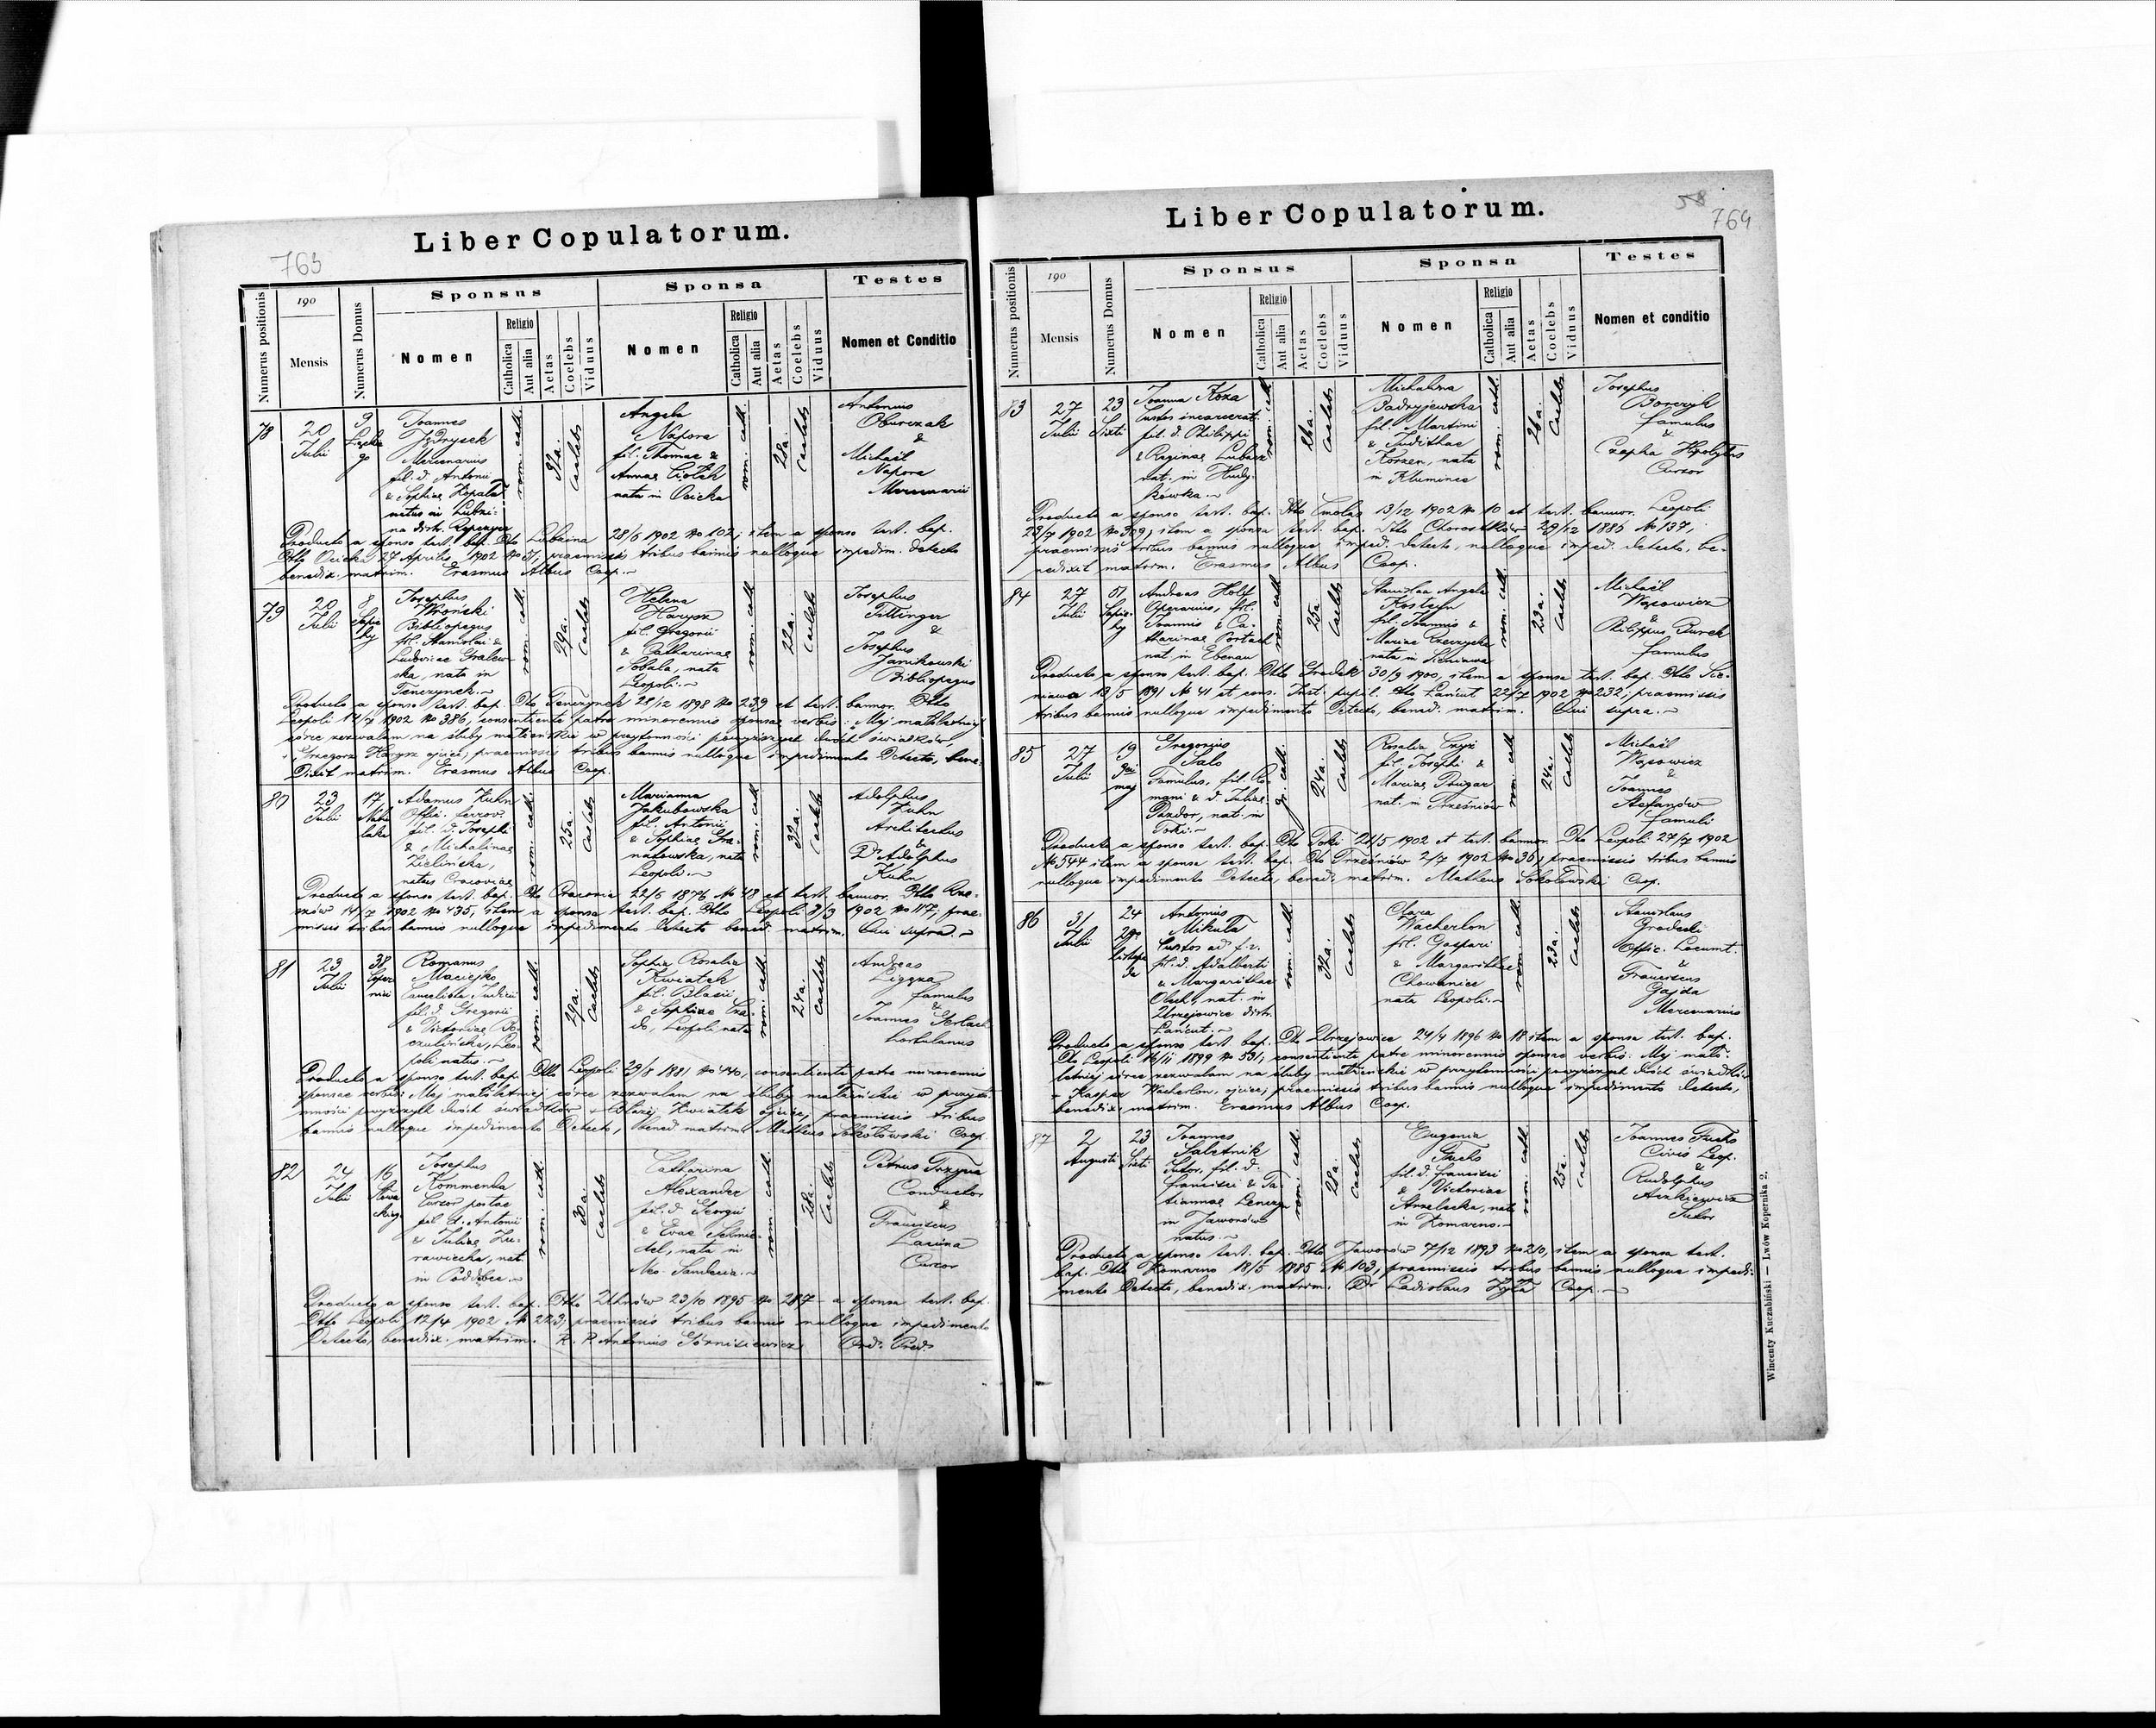 Liber Copulatorum.
763
Numerus positionis
190
Mensis
Numerus Domus
Sponsus
Nomen
Religio
Catholica
Aut alia
Aetas
Coelebs
Viduus
Sponsa
Nomen
Religio
Catholica
Aut alia
Aetas
Coelebs
Viduus
Testes
Nomen et Conditio
78
20
Julii
9
Joannes
Jędrysek
Mercenarius
fil. d. Antonii
& Sophiae Kopala
natus in Lubzi-
na distr.
rom. cath.
caelebs
Angela
Napora
fil. Thomae &
Annae
nata in Osieka
rom. cath.
28a.
caelebs
Antonius
Oburczak
&
Michaël
Napora
Mercenarii
Producto a sponso test. bap. Dtto Lubzina 28/6 1902 No 102; item a sponso test. bap.
Dtto Osieka 27 Aprilis 1902 No 51, praemissis tribus bannis nulloque impedim. detecto
benedix. matrim. Erasmus Albus Coop.
79
20
Julii
8
Sapie
hy
Josephus
Wroński
Bibliopegus
fil. Stanislai &
Ludovicae Gralew-
ska, nata in
Tenczynek.
rom. cath.
29a.
caelebs
Helena
Harysz
fil. Gregorii
& Catharinae
Sobala, nata
Leopoli.
rom. cath.
22a.
caelebs
Josephus
Tillinger
&
Josephus
Janikowski
Bibliopegus
Producto a sponso test. bap. Dto Tenczynek 28/12 1898 No 239 et test. bannor. Dtto
Leopoli 14/7 1902 No 386, consentiente patre minorennis sponsae verbis: Mej małoletniej
córce zezwalam na śluby małżeńskie w przytomności powyższych dwóch świadków,
Grzegorz Harysz ojciec; praemissis tribus bannis nulloque impedimento detecto, bene-
dixit matrim. Erasmus Albus Coop.
80
23
Julii
17
Adamus Kuhn
Offic. ferrov.
fil. d. Josephi
& Michalinae
Zielińska,
natus Cracoviae
rom. cath.
25a.
caelebs
Marianna
Jakubowska
fil. Antonii
& Sophiae Gra-
natowska, nata
Leopoli.
rom. cath.
32a.
caelebs
Adolphus
Kuhn
Architectus
&
Dr Adolphus
Kuhn
Producto a sponso test. bap. Dto Cracovia 22/6 1876 No 48 et test. bannor. Dtto Rze-
szów 14/7 1902 No 435, item a sponsa test. bap. Dtto Leopoli 3/3 1902 No 117, prae-
missis tribus bannis nulloque impedimento detecto bened. matrim. Qui supra.
81
23
Julii
38
Romanus
Maciejko
Cancelista Judicii
fil. d. Gregorii
& Victoriae
poli natus.
rom. cath.
29a.
caelebs
Sophia Rosalia
Kwiatek
fil. Blasii
& Sophiae
Leopoli nata
rom. cath.
24a.
caelebs
Andreas
famulus
&
Joannes Gerlach
hortulanus
Producto a sponso test. bap. Dtto Leopoli 29/8 1881 No 440, consentiente patre minorennis
sponsae verbis: Mej małoletniej córce zezwalam na śluby małżeńskie w przyto-
mności powyższych dwóch świadków + Błażej Kwiatek ojciec, praemissis tribus
bannis nulloque impedimento detecto, bened. matrim. Matheus Sokołowski Coop.
82
24
Julii
16
Josephus
Kommenda
Cursor postae
fil. d. Antonii
& Juliae Żu-
rawiecka, nat.
in
rom. cath.
30a.
caelebs
Catharina
Alexander
fil. d. Georgii
& Evae Schmie-
del, nata in
Neo-Sandecia.
rom. cath.
28a.
caelebs
Petrus Trzyna
Conductor
&
Franciscus
Cursor
Producto a sponso test. bap. Dtto Uhnów 23/10 1895 No 287 a sponsa test. bap.
Dtto Leopoli 12/4 1902 No 223, praemissis tribus bannis nulloque impedimento
detecto, benedix. matrim. R. P. Antonius Górnisiewicz Ord. Pred.
Liber Copulatorum.
58
764
Numerus positionis
190
Mensis
Numerus Domus
Sponsus
Nomen
Religio
Catholica
Aut alia
Aetas
Coelebs
Viduus
Sponsa
Nomen
Religio
Catholica
Aut alia
Aetas
Coelebs
Viduus
Testes
Nomen et conditio
83
27
Julii
23
Sixti
Koza
Custos incarcerat.
fil. d. Philippi
& Reginae
nat. in Hudy-
kówka.
rom. cath.
26a.
caelebs
Michalina
fil. Martini
& Judithae
Korzen, nata
in Kluwince
rom. cath.
26a.
caelebs
Josephus
Borczyk
famulus
&
Czapka Hipolytus
Cursor
Producto a sponso test. bap. Dtto Cmolas 13/12 1902 No 10 et test. bannor. Leopoli
23/7 1902 No 309, item a sponsa test. bap. Dtto Chorostków 29/12 1886 No 137,
praemissis tribus bannis nulloque imped. detecto, nulloque imped. detecto, be-
nedixit matrim. Erasmus Albus Coop.
84
27
Julii
51
Sapie-
hy
Andreas Holf
Operarius, fil.
Joannis & Ca-
tharinae Portach
nat. in Ebenau
rom. cath.
25a.
caelebs
Stanislaa Angela
Kostyn
fil. Joannis &
Mariae
nata in Sieniawa
rom. cath.
23a.
caelebs
Michaël
Wąsowicz
&
Philippus Burek
famulus
Producto a sponso test. bap. Dtto Grodek 30/9 1900, item a sponsa test. bap. Dtto Sie-
niawa 13/5 1891 No 41 et cons. Inst. pupil. dto Łańcut 22/7 1902 No 232; praemissis
tribus bannis nulloque impedimento detecto, bened. matrim. Qui supra.
85
27
Julii
19
3go
maj
Gregorius
Salo
Famulus, fil. Ro-
mani & d. Juliae
Pazdor, nat. in
Toki.
gr. cath.
24a.
caelebs
Rosalia Czyż
fil. Josephi &
Mariae
nat. in Trześniów
rom. cath.
24a.
caelebs
Michaël
Wąsowicz
&
Joannes
Stefanów
famuli
Producto a sponso test. bap. Dto Toki 21/5 1902 et test. bannor. Dto Leopoli 27/7 1902
No 544 item a sponsa test. bap. Dto Trześniów 2/7 1902 No 36; praemissis tribus bannis
nulloque impedimento detecto, bened. matrim. Matheus Sokołowski Coop.
86
31
Julii
24
29go
Listopa
da
Antonius
Mikuła
Custos ad f. v.
fil. d. Adalberti
& Margarithae
nat. in
Urzejowice distr.
Łańcut.
rom. cath.
32a.
caelebs
Clara
Wacherlon
fil. Gaspari
& Margarithae
Chowaniec
nata Leopoli.
rom. cath.
23a.
caelebs
Stanislaus
Grodecki
Offic. Locumt.
&
Franciscus
Gajda
Mercenarius
Producto a sponso test. bap. Dto Urzejowice 24/4 1896 No 18 item a sponsa test. bap.
Dto Leopoli 16/11 1899 No 531, consentiente patre minorennis sponsae verbis: Mej mało-
letniej córce zezwalam na śluby małżeńskie w przytomności powyższych dwóch świadków
+ Kasper Wacherlon, ojciec; praemissis tribus bannis nulloque impedimento detecto,
benedix. matrim. Erasmus Albus Coop.
87
2
Augusti
23
Sixti
Joannes
Saletnik
Sutor, fil. d.
Francisci & Ta-
tiannae
in Jaworów
natus.
rom. cath.
28a.
caelebs
Eugenia
Fuchs
fil. d. Francisci
& Victoriae
Strzelecka, nata
in Komarno.
rom. cath.
25a.
caelebs
Joannes Fuchs
Civis Leop.
&
Rudolphus
Sutor
Producto a sponso test. bap. Dtto Jaworów 7/12 1893 No 210, item a sponsa test.
bap. Dtto Komarno 18/5 1885 No 103, praemissis tribus bannis nulloque impedi-
mento detecto, benedix. matrim. Dr Ladislaus Żyła Coop.
Wincenty Kuczabiński — Lwów Kopernika 2.